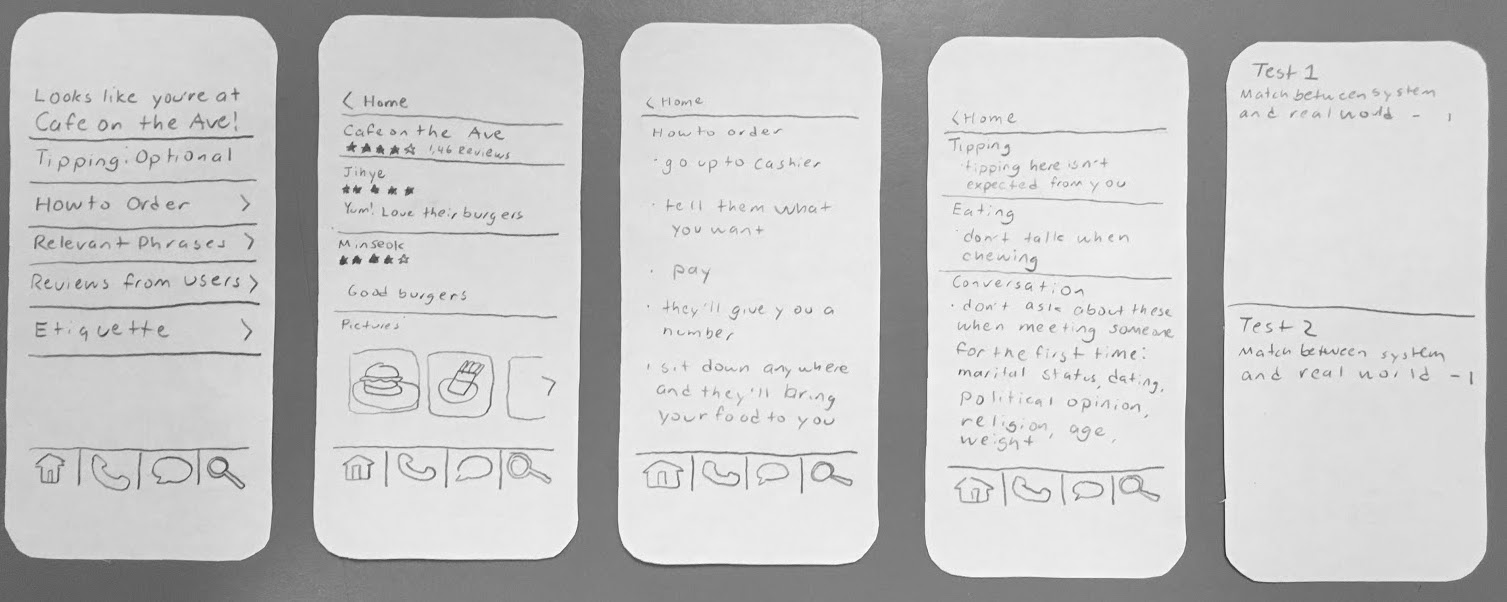 Looks like you're at
Cafe on the Ave!
Tipping: Optional
How to Order >
Relevant Phrases >
Reviews from users >
Etiquette >
< Home
Cafe on the Ave
★★★★☆ 1,46 Reviews
Jihye
★★★★★
Yum! Love their burgers
Minseok
★★★★☆
Good burgers
Pictures
>
< Home
How to order
· go up to cashier
· tell them what
you want
· pay
· they'll give you a
number
· sit down anywhere
and they'll bring
your food to you
< Home
Tipping
· tipping here isn't
expected from you
Eating
· don't talk when
chewing
Conversation
· don't ask about these
when meeting someone
for the first time:
marital status, dating,
political opinion,
religion, age,
weight
Test 1
Match between system
and real world - 1
Test 2
Match between system
and real world - 1